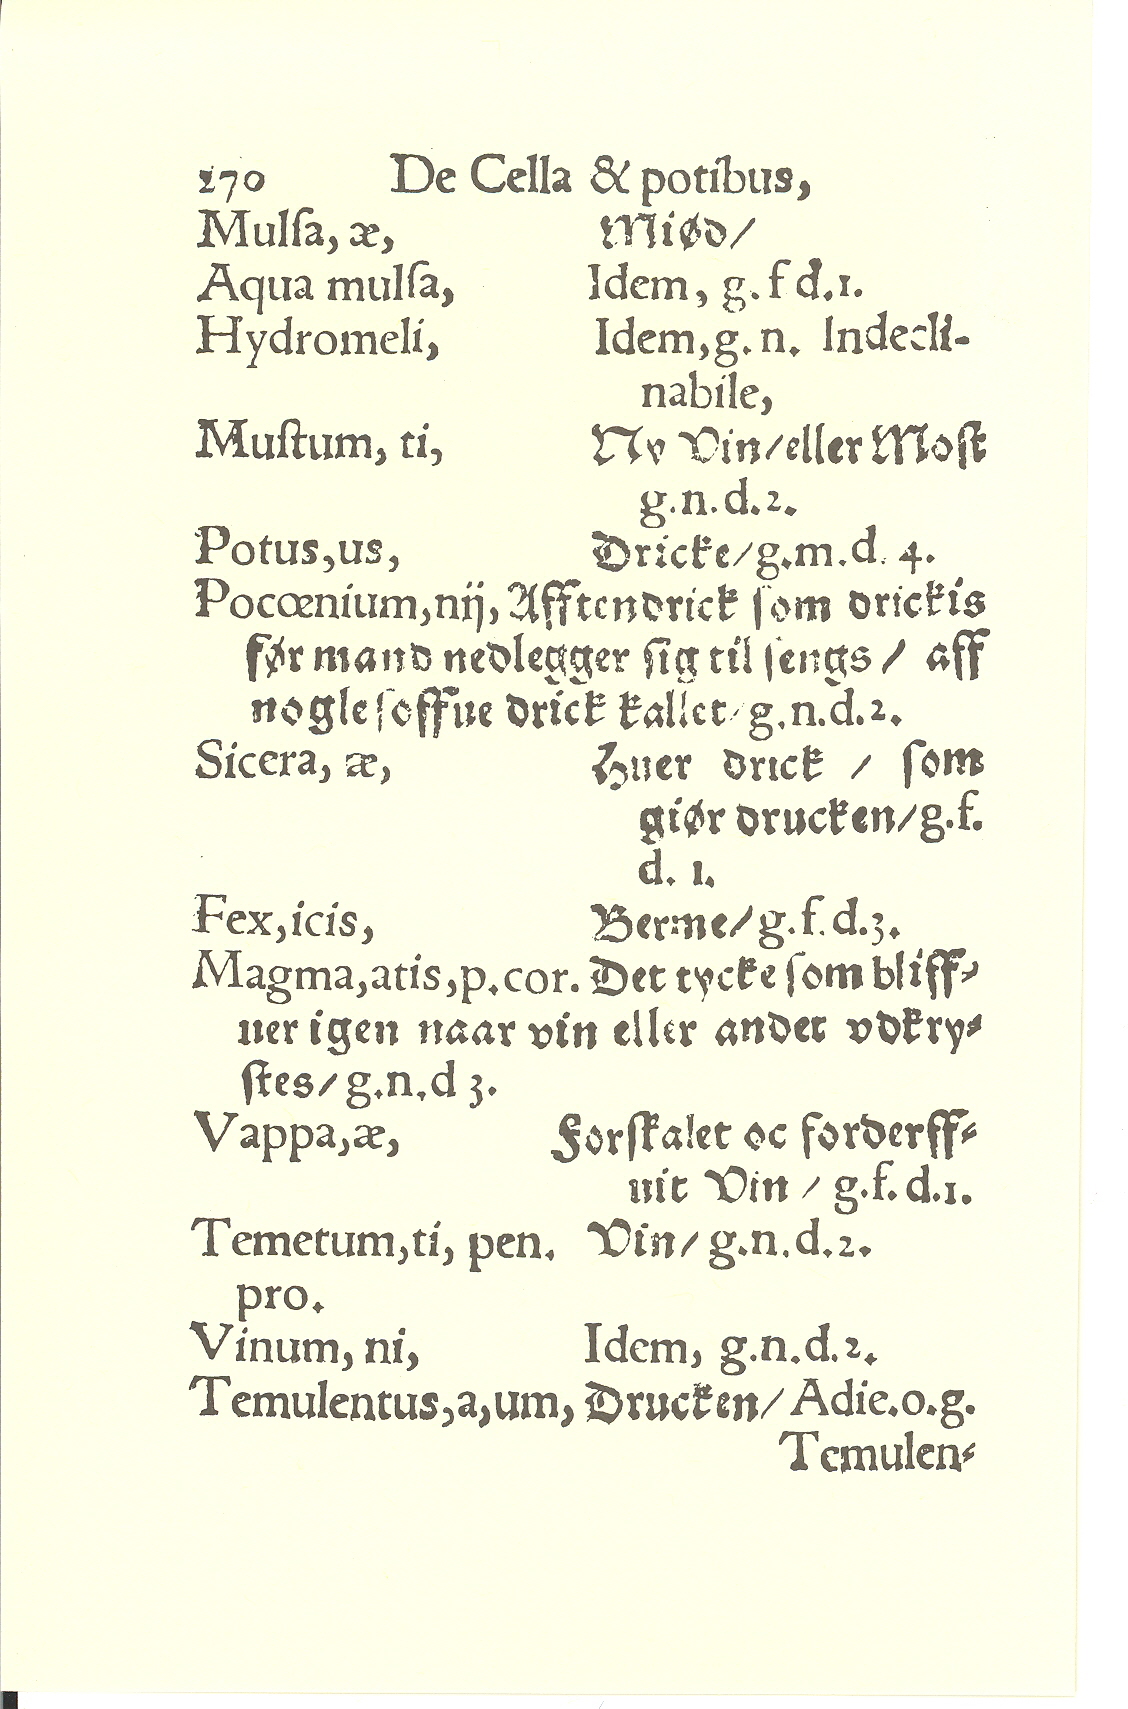 270 De Cella & potibus,
Mulſa, æ, Miød/
Aqua mulſa, Idem, g. f d.1.
Hydromeli, Idem,g. n. Indecli-
nabile,
Muſtum, ti, Ny Vin/eller Moſt
g.n.d.2.
Potus,us, Dricke/g.m.d. 4.
Pocœnium,nij, Afftendrick ſom drickis
før mand nedlegger ſig til ſengs / aff
nogle ſoffue drick kallet/g.n.d.2.
Sicera, æ, Huer drick / ſom
giør drucken/g.f.
d. 1.
Fex,icis, Berme/g.f.d.3.
Magma,atis,p.cor. Det tycke ſom bliff-
uer igen naar vin eller andet vdkry-
ſtes/g.n.d 3.
Vappa,æ, Forſkalet oc forderff-
uit Vin / g.f.d.1.
Temetum,ti, pen. Vin/g.n.d.2.
pro.
Vinum, ni, Idem, g.n.d.2.
Temulentus,a,um, Drucken/Adie.o.g.
Temulen-